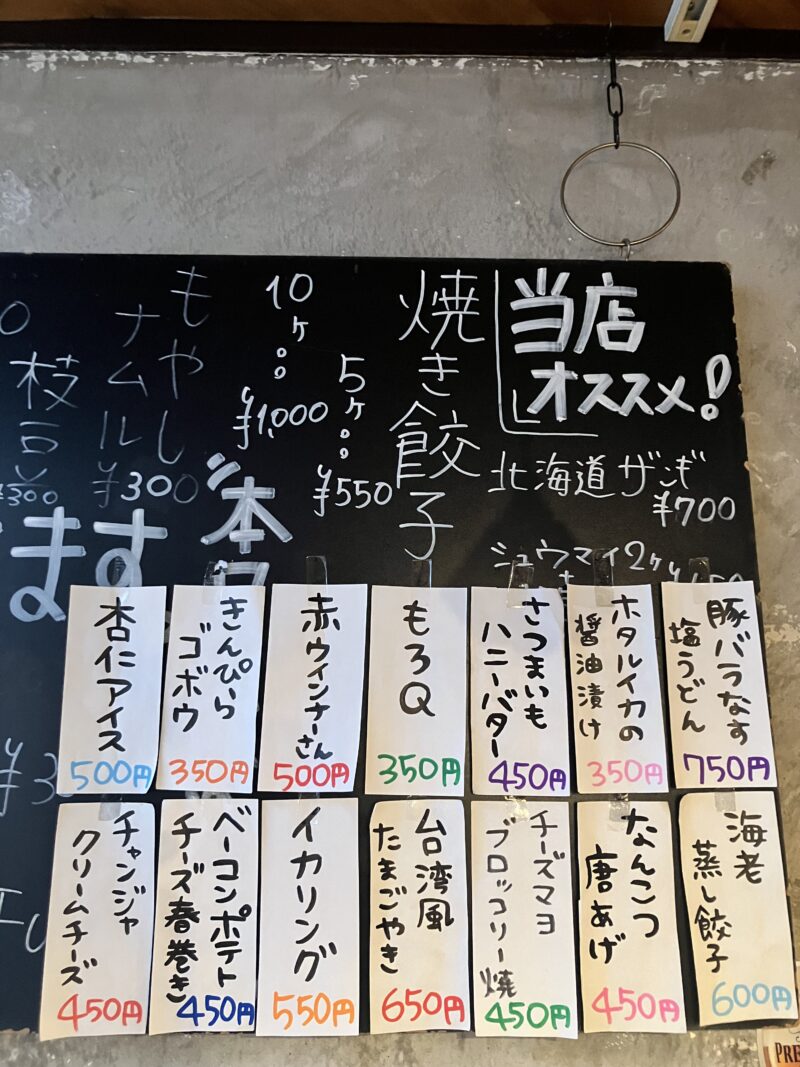 当店
オススメ!
北海道ザンギ
¥700
シュウマイ2ケ
焼き餃子
5ケ。。
¥550
10ケ。。
¥1,000
もやし
ナムル
¥300
枝豆
¥300
本日
ます
豚バラなす
塩うどん
750円
ホタルイカの
醤油漬け
350円
さつまいも
ハニーバター
450円
もろQ
350円
赤ウィンナーさん
500円
きんぴら
ゴボウ
350円
杏仁アイス
500円
海老
蒸し餃子
600円
なんこつ
唐あげ
450円
チーズマヨ
ブロッコリー焼
450円
台湾風
たまごやき
650円
イカリング
550円
ベーコンポテト
チーズ春巻き
450円
チャンジャ
クリームチーズ
450円
PRE